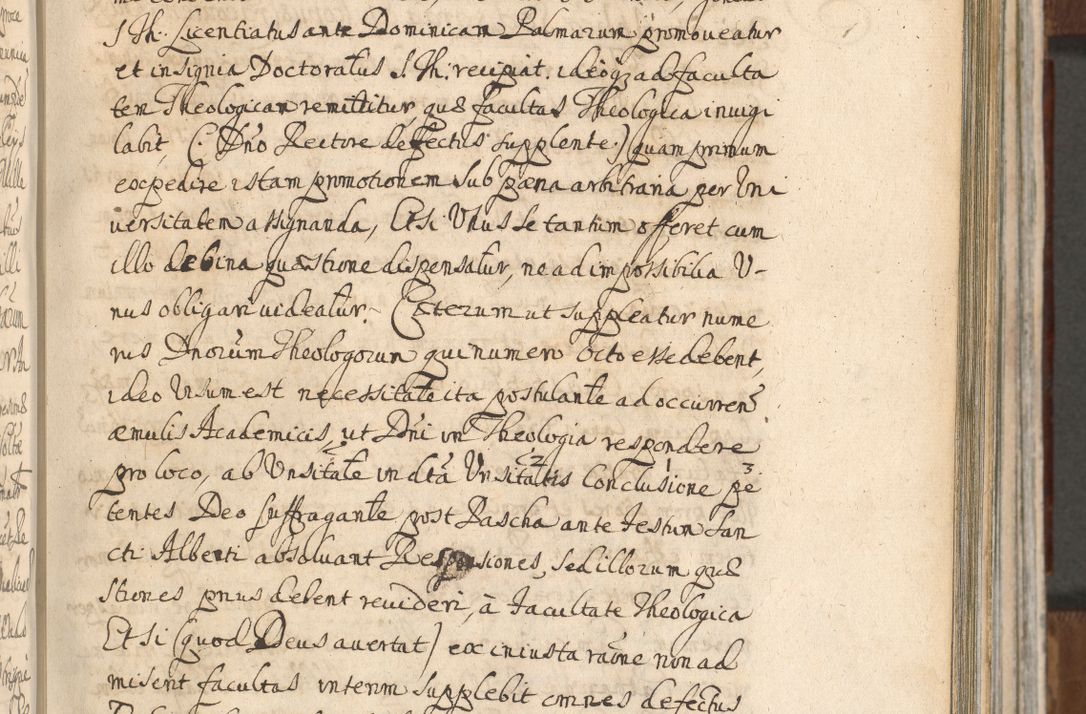 S. Th. Licentiatus ante Dominicam Palmarum promoveatur
et insignia Doctoratus S. Th. recipiat. ideoq3 ad faculta
tem Theologicam remittitur, quę facultas Theologica invigi
labit, (: Dno Rectore defectus supplente :) quam primum
expedire istam promotionem sub pæna arbitraria per Uni
versitatem assignanda, Et si Unus se tantum offeret cum
illo de bina quæstione dispensatur, ne ad impossibilia U-
nus obligari videatur. Cæterum ut suppleatur nume
rus Dnorum Theologorum qui numero octo esse debent,
ideo Visum est necessitate ita postulante ad occurren
æmulis Academicis, ut Dni in Theologia respondere
pro loco, ab Unsitate in dta Unsitatis Conclusione pe
tentes Deo suffragante post Pascha ante Festum San
cti Alberti absolvant Responsiones, sed illorum quę
stiones prius debent revideri, à Facultate Theologica
Et si (quod Deus avertat) ex iniusta raone non ad
miserit facultas interim supplebit omnes defectus